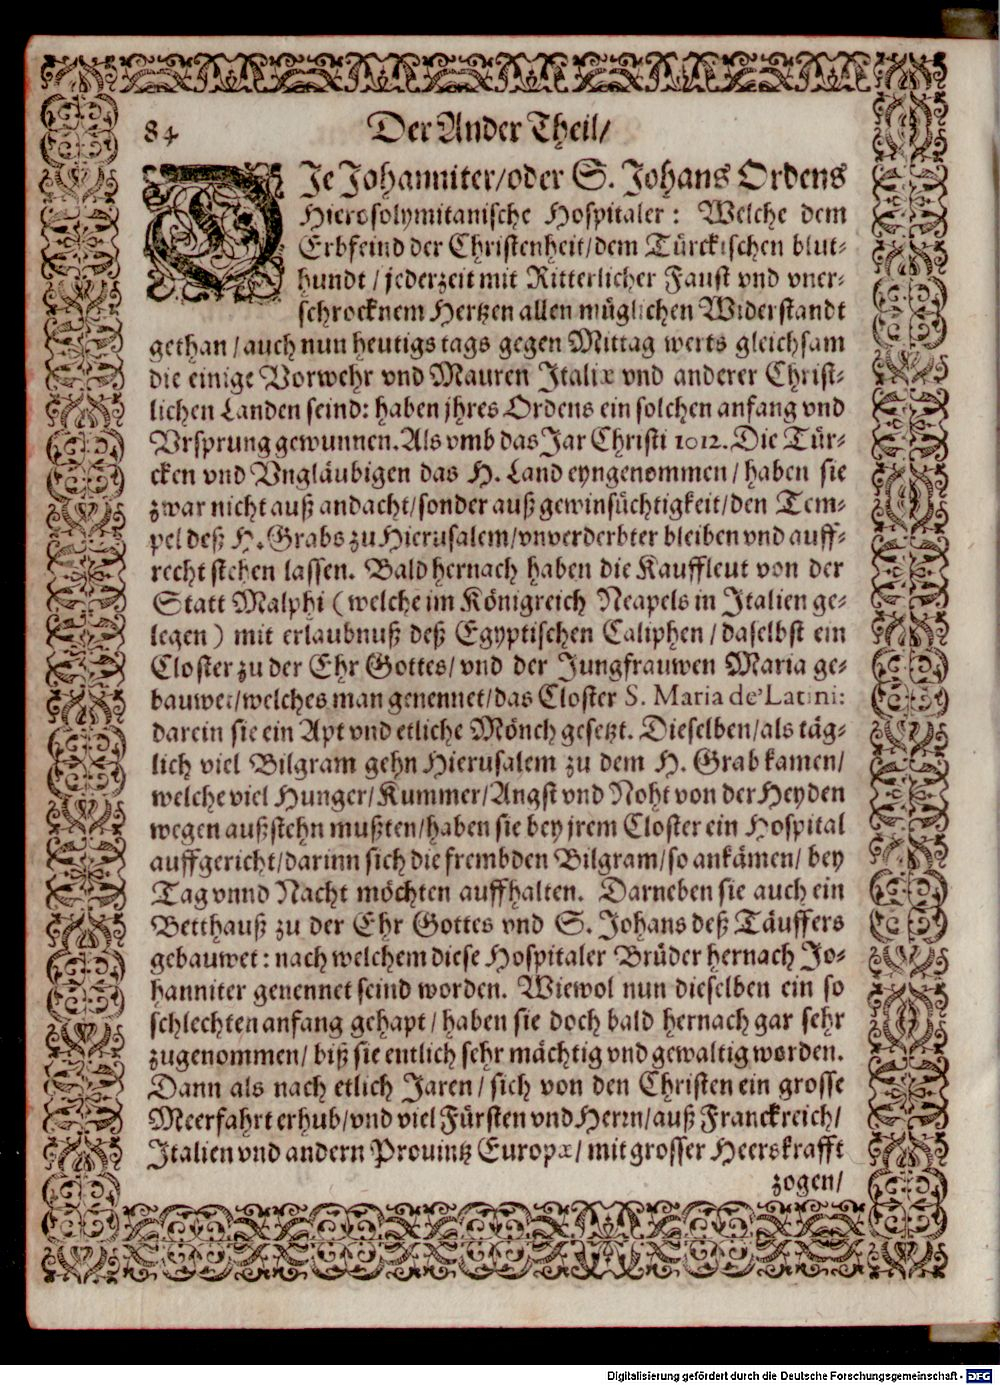 84 Der Ander Theil/
DIe Johanniter/oder S. Johans Ordens
Hierosolymitanische Hospitaler: Welche dem
Erbfeind der Christenheit/dem Türckischen blut⸗
hundt/jederzeit mit Ritterlicher Faust vnd vner⸗
schrocknem Hertzen allen müglichen Widerstandt
gethan/auch nun heutigs tags gegen Mittag werts gleichsam
die einige Vorwehr vnd Mauren Italiæ vnd anderer Christ⸗
lichen Landen seind: haben jhres Ordens ein solchen anfang vnd
Vrsprung gewunnen. Als vmb das Jar Christi 1012. Die Tür⸗
cken vnd Vngläubigen das H. Land eyngenommen/haben sie
zwar nicht auß andacht/sonder auß gewinsüchtigkeit/den Tem⸗
pel deß H. Grabs zu Hierusalem/vnverderbter bleiben vnd auff⸗
recht stehen lassen. Bald hernach haben die Kauffleut von der
Statt Malphi (welche im Königreich Neapels in Italien ge⸗
legen) mit erlaubnuß deß Egyptischen Caliphen/daselbst ein
Closter zu der Ehr Gottes/vnd der Jungfrauwen Maria ge⸗
bauwet/welches man genennet/das Closter S. Maria de' Latini:
darein sie ein Apt vnd etliche Mönch gesetzt. Dieselben/als täg⸗
lich viel Bilgram gehn Hierusalem zu dem H. Grab kamen/
welche viel Hunger/Kummer/Angst vnd Noht von der Heyden
wegen außstehn mußten/haben sie bey jrem Closter ein Hospital
auffgericht/darinn sich die frembden Bilgram/so ankämen/bey
Tag vnnd Nacht möchten auffhalten. Darneben sie auch ein
Betthauß zu der Ehr Gottes vnd S. Johans deß Täuffers
gebauwet: nach welchem diese Hospitaler Brüder hernach Jo⸗
hanniter genennet seind worden. Wiewol nun dieselben ein so
schlechten anfang gehapt/haben sie doch bald hernach gar sehr
zugenommen/biß sie entlich sehr mächtig vnd gewaltig worden.
Dann als nach etlich Jaren/sich von den Christen ein grosse
Meerfahrt erhub/vnd viel Fürsten vnd Herrn/auß Franckreich/
Italien vnd andern Prouintz Europæ/mit grosser Heerskrafft
zogen/
Digitalisierung gefördert durch die Deutsche Forschungsgemeinschaft - DFG